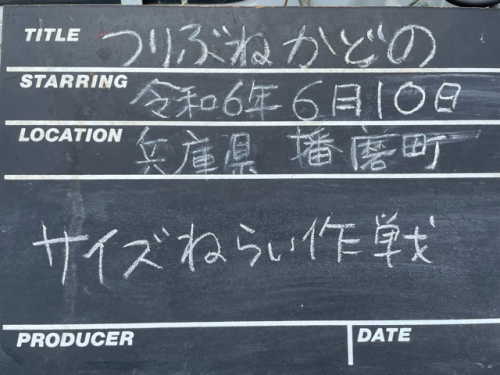 TITLE つりぶねかどの
STARRING 令和6年6月10日
LOCATION 兵庫県 播磨町
サイズねらい作戦
PRODUCER DATE